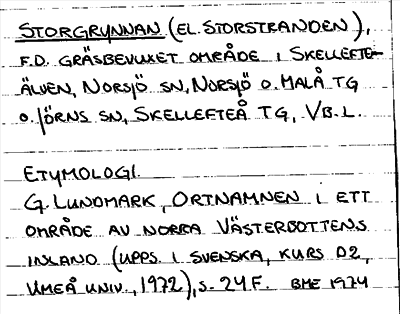 STORGRYNNAN (EL. STORSTRANDEN),
F.D. GRÄSBEVUXET OMRÅDE I SKELLEFTE-
ÄLVEN, NORSJÖ SN, NORSJÖ O. MALÅ TG
O. JÖRNS SN, SKELLEFTEÅ TG, VB. L.
ETYMOLOGI.
G. LUNDMARK, ORTNAMNEN I ETT
OMRÅDE AV NORRA VÄSTERBOTTENS
INLAND (UPPS. I SVENSKA, KURS D2,
UMEÅ UNIV., 1972), S. 24 F. BME 1974